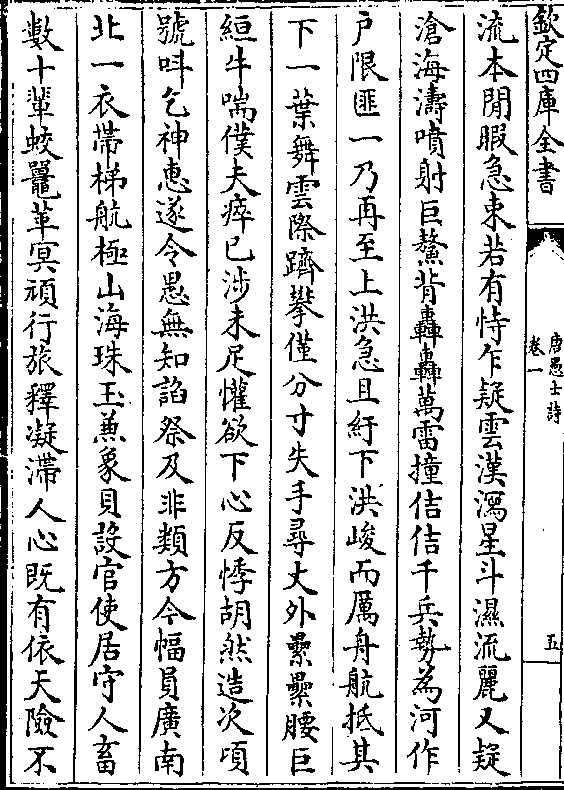 欽定四庫全書
唐愚士詩
卷一
五
流本閒暇急束若有恃乍疑雲漢瀉星斗濕流麗又疑
滄海濤噴射巨鰲背轟轟萬雷撞佶佶千兵勢為河作
户限匪一乃再至上洪急且紆下洪峻而厲舟航抵其
下一葉舞雲際躋攀僅分寸失手尋丈外纍纍腰巨
絙牛喘僕夫瘁已涉未足懽欲下心反悸胡然造次頃
號呌乞神惠遂令愚無知諂祭及非類方今幅員廣南
北一衣帶梯航極山海珠玉兼象貝設官使居守人畜
數十輩蛟鼉革冥頑行旅釋凝滯人心既有依天險不